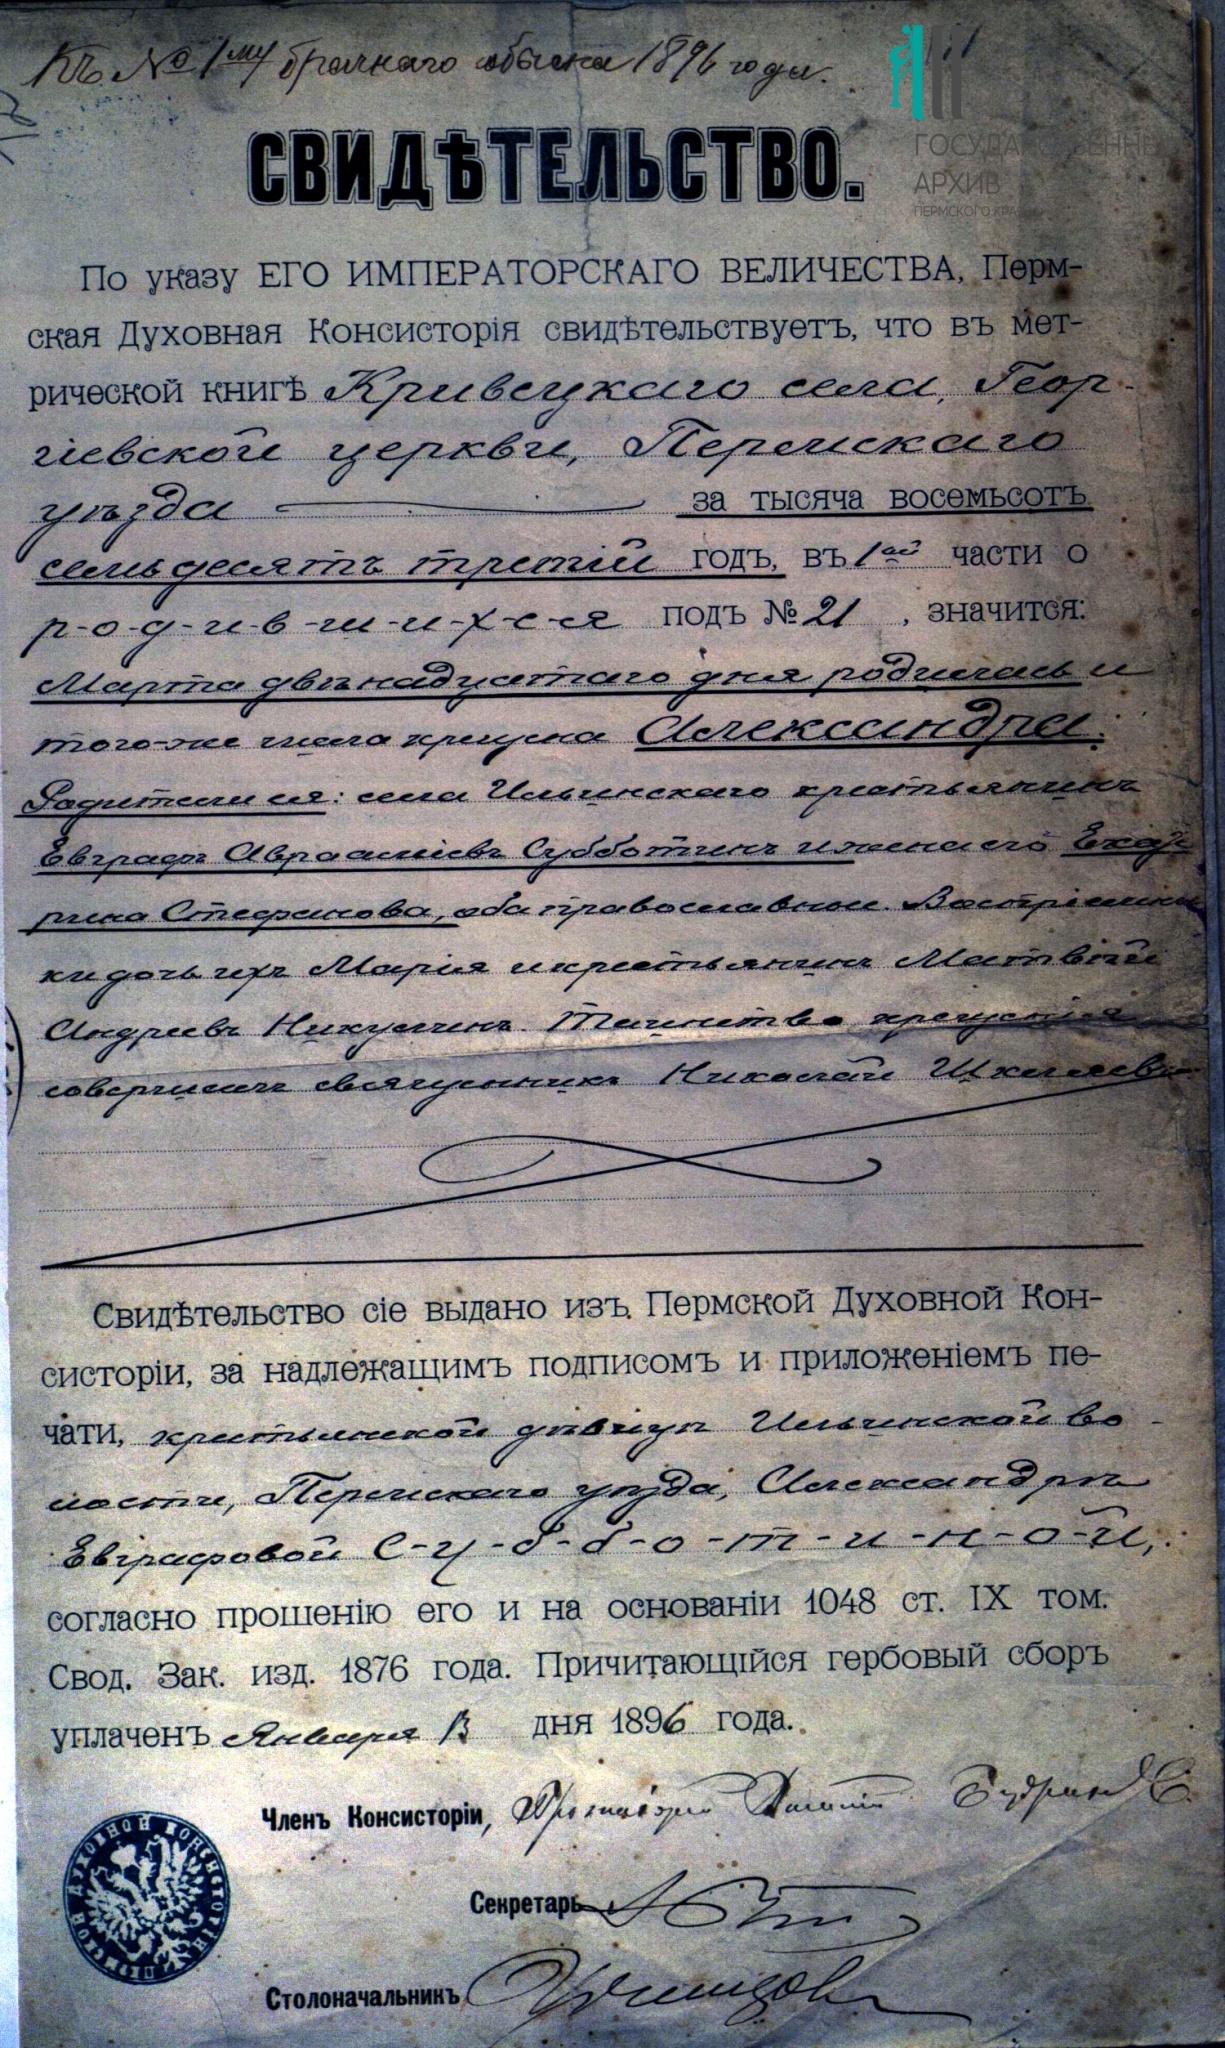 Къ № 1му брачнаго обыска 1896 года.
ГОСУДАРСТВЕННЫ
АРХИВ
ПЕРМСКОГО КРАЯ
СВИДѢТЕЛЬСТВО.
По указу ЕГО ИМПЕРАТОРСКАГО ВЕЛИЧЕСТВА, Перм-
ская Духовная Консисторія свидѣтельствуетъ, что въ мет-
рической книгѣ Кривецкаго села, Геор-
гіевской церкви, Пермскаго
уѣзда за тысяча восемьсотъ
семьдесятъ третій годъ, въ 1ой части о
р-о-д-и-в-ш-и-х-с-я подъ № 21, значится:
Марта двѣнадцатаго дня родилась и
того-же числа крещена Александра.
Родители ея: села Ильинскаго крестьянинъ
Евграфъ Авраамiевъ Субботинъ и жена его Екате
рина Стефанова, оба православные. Воспріемни
ки дочь ихъ Марія и крестьянинъ Матвѣй
Андреевъ Никулинъ. Таинство крещенія
совершилъ священникъ Николай Шкляевъ
Свидѣтельство сіе выдано изъ Пермской Духовной Кон-
систоріи, за надлежащимъ подписомъ и приложеніемъ пе-
чати, крестьянской дѣвицѣ Ильинской во-
лости, Пермскаго уѣзда, Александрѣ
Евграфовой С-у-б-б-о-т-и-н-о-й,
согласно прошенію его и на основаніи 1048 ст. IX том.
Свод. Зак. изд. 1876 года. Причитающійся гербовый сборъ
уплаченъ Января дня 1896 года.
Членъ Консисторіи, Протоіерей
Секретарь
Столоначальникъ
ПЕРМСКОЙ ДУХОВНОЙ КОНСИСТОРІИ